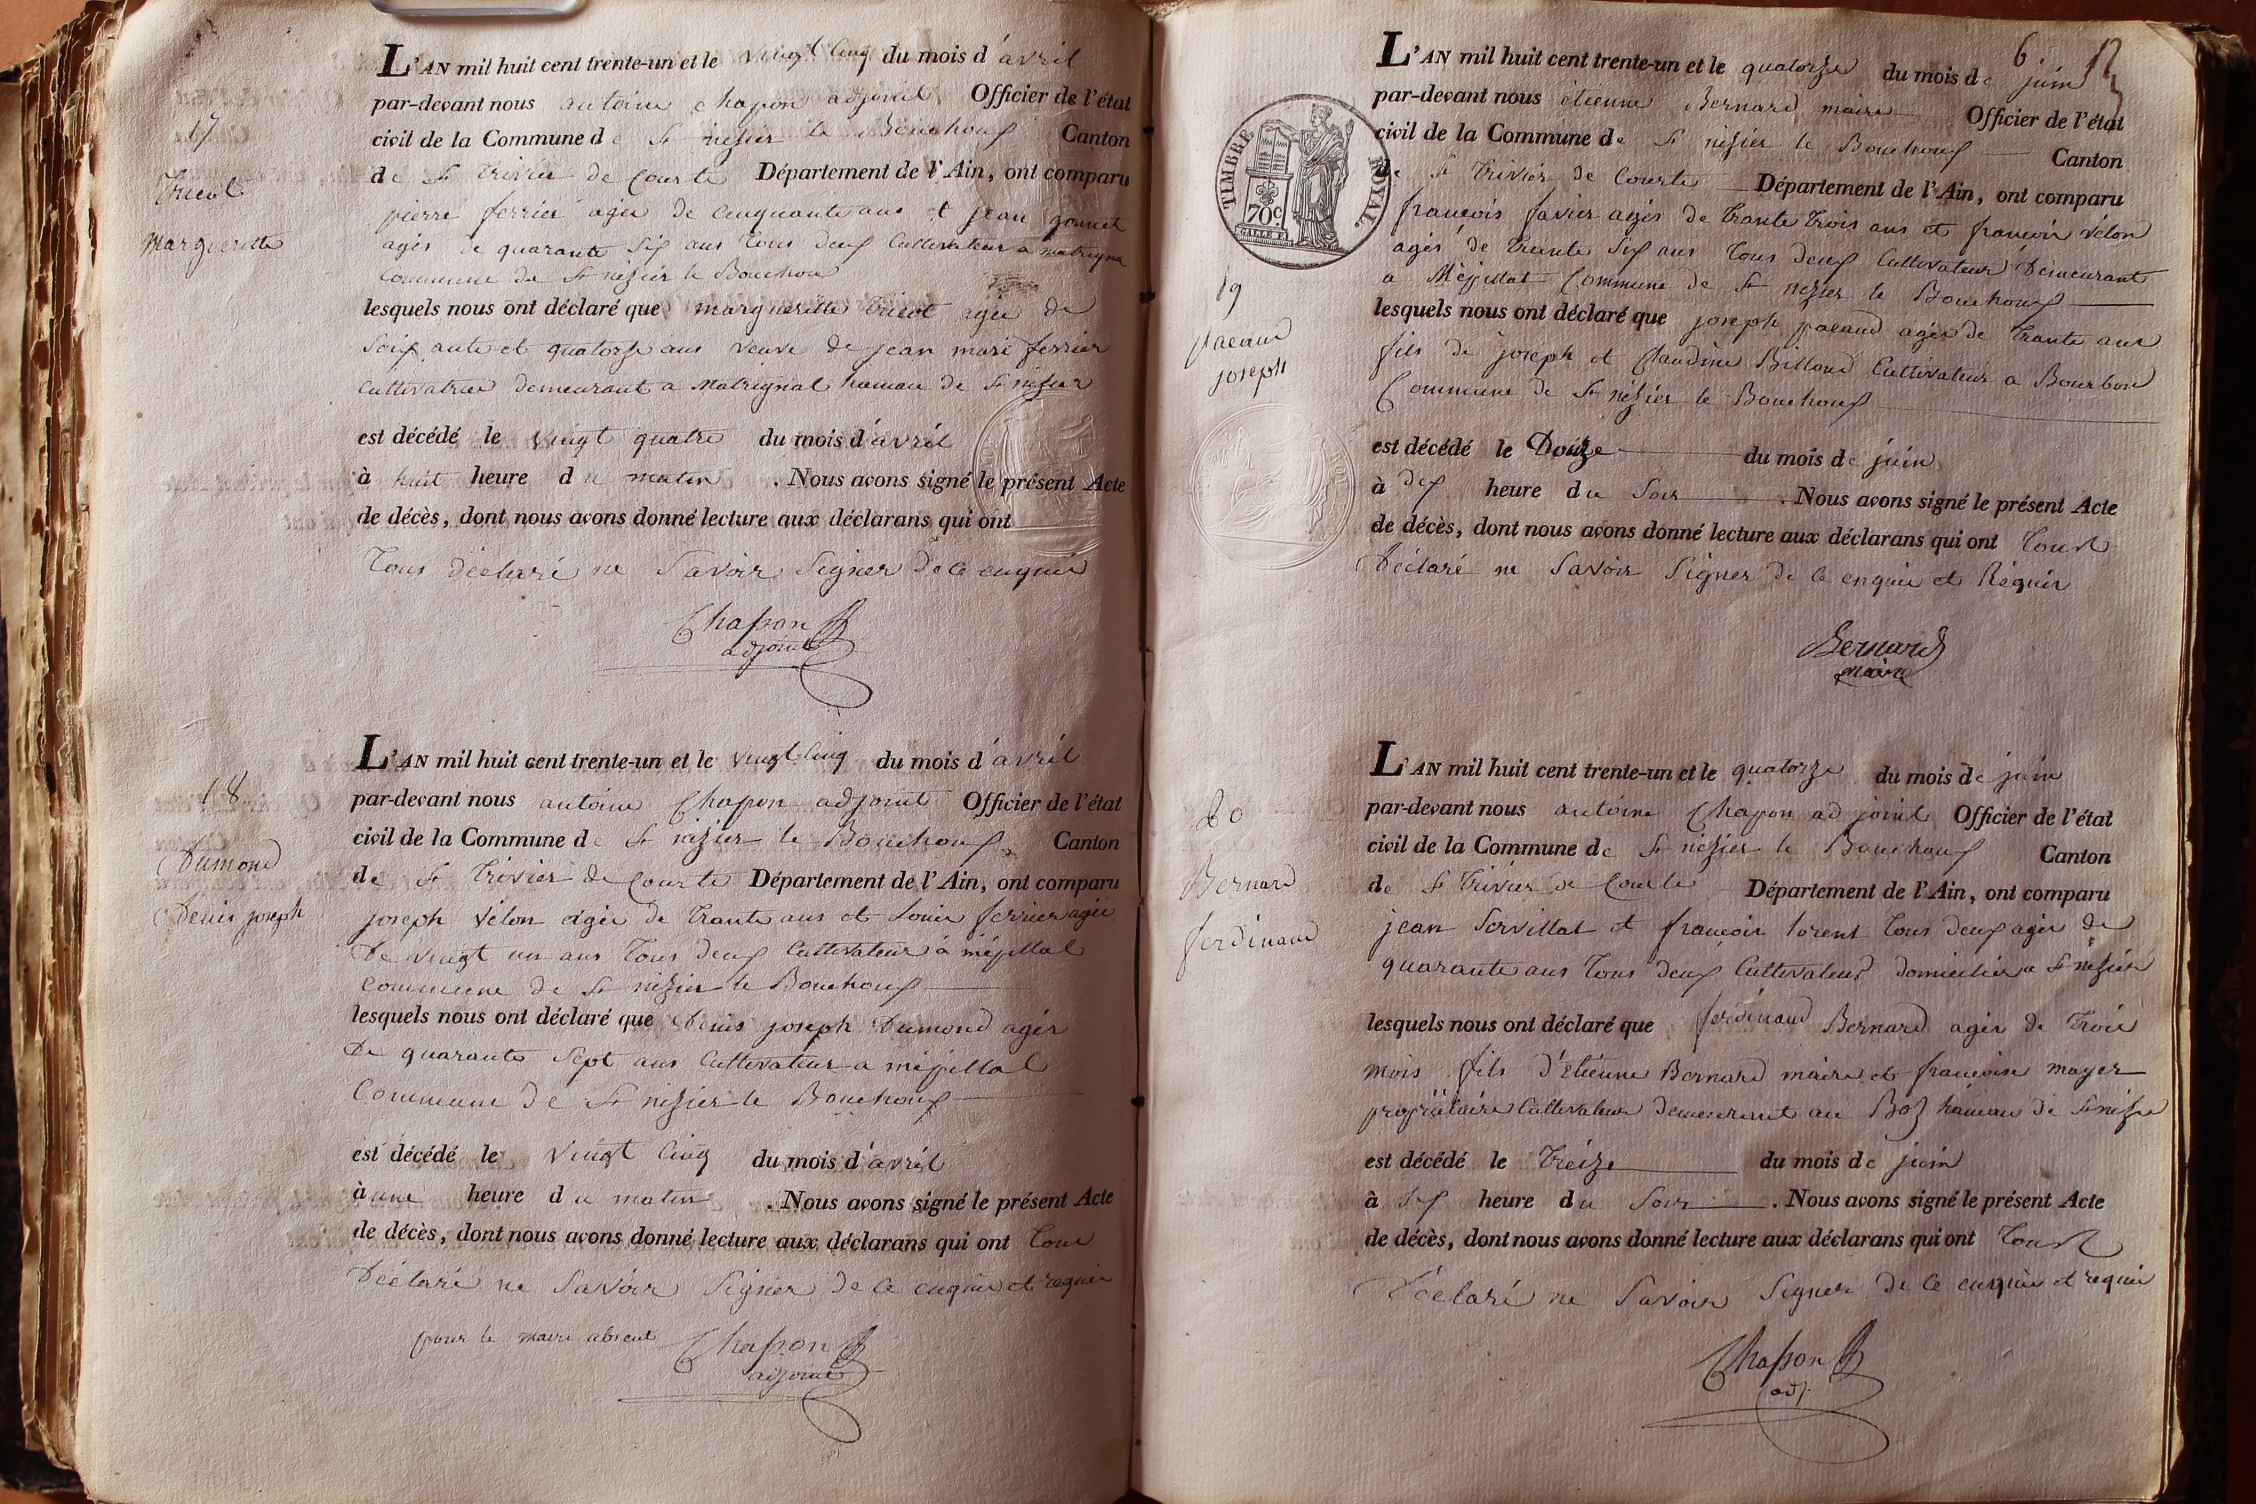 17
tricot
marguerite
L'AN mil huit cent trente-un et le vingt cinq du mois d'avril
par-devant nous antoine chapon adjoint Officier de l'état
civil de la Commune de St nizier le Bouchoux Canton
de St trivier de Courte Département de l'Ain, ont comparu
pierre ferrier agée de cinquante ans et jean
agés de quarante six ans tous deux Cultivateur a
Commune de St nizier le Bouchou
lesquels nous ont déclaré que marguerite tricot agée de
Soixante et quatorze ans veuve de jean marie ferrier
Cultivatrice demeurant a Matrignat hamau de St nizier
est décédé le vingt quatre du mois d'avril
à huit heure du matin . Nous avons signé le présent Acte
de décès, dont nous avons donné lecture aux déclarans qui ont
Tous déclaré ne Savoir Signer de ce enquis
Chapon
adjoint
18
Dumond
Denis joseph
L'AN mil huit cent trente-un et le vingt cinq du mois d'avril
par-devant nous antoine Chapon adjoint Officier de l'état
civil de la Commune de St nizier le Bouchoux Canton
de St trivier de Courte Département de l'Ain, ont comparu
joseph vélon agée de trante ans et Louis ferrier agée
De vingt un ans tous deux Cultivateur à mépillat
commune de St nizier le Bouchoux
lesquels nous ont déclaré que Denis joseph Dumond agés
De quarante Sept ans Cultivateur a mépillat
Commune de St nizier le Bouchoux
est décédé le vingt cinq du mois d'avril
à une heure du matin . Nous avons signé le présent Acte
de décès, dont nous avons donné lecture aux déclarans qui ont tous
Déclaré ne Savoir Signer de ce enquis et requis
pour le maire absent Chapon
adjoint
6
TIMBRE ROYAL
70c
19
pacaud
joseph
L'AN mil huit cent trente-un et le quatorze du mois de juin
par-devant nous étienne Bernard maire Officier de l'état
civil de la Commune de St nizier le Bouchoux Canton
de St trivier de Courte Département de l'Ain, ont comparu
françois favier agés de trante trois ans et françois vélon
agés de trante Six ans tous deux Cultivateur Demeurant
a Mépillat Commune de St nizier le Bouchoux
lesquels nous ont déclaré que joseph pacaud agés de trante ans
fils de joseph et Claudine Billoud Cultivateur a Bourbon
Commune de St nizier le Bouchoux
est décédé le Douze du mois de juin
à dix heure du Soir . Nous avons signé le présent Acte
de décès, dont nous avons donné lecture aux déclarans qui ont tous
Déclaré ne Savoir Signer de ce enquis et Réquis
Bernard
maire
20
Bernard
ferdinand
L'AN mil huit cent trente-un et le quatorze du mois de juin
par-devant nous antoine Chapon ad joint Officier de l'état
civil de la Commune de St nizier le Bouchoux Canton
de St trivier de Courte Département de l'Ain, ont comparu
jean Servillat et françois torent tous deux agés de
quarante ans tous deux Cultivateur domiciliés a St nizier
lesquels nous ont déclaré que ferdinand Bernard agés de trois
mois fils d'Etienne Bernard maire et francoise mayer
propriétaire Cultivateur demeurant au Boz hamau de St nizie
est décédé le treize du mois de juin
à Six heure du Soir . Nous avons signé le présent Acte
de décès, dont nous avons donné lecture aux déclarans qui ont tous
Déclaré ne Savoir Signer de ce enquis et requis
Chapon
adj.